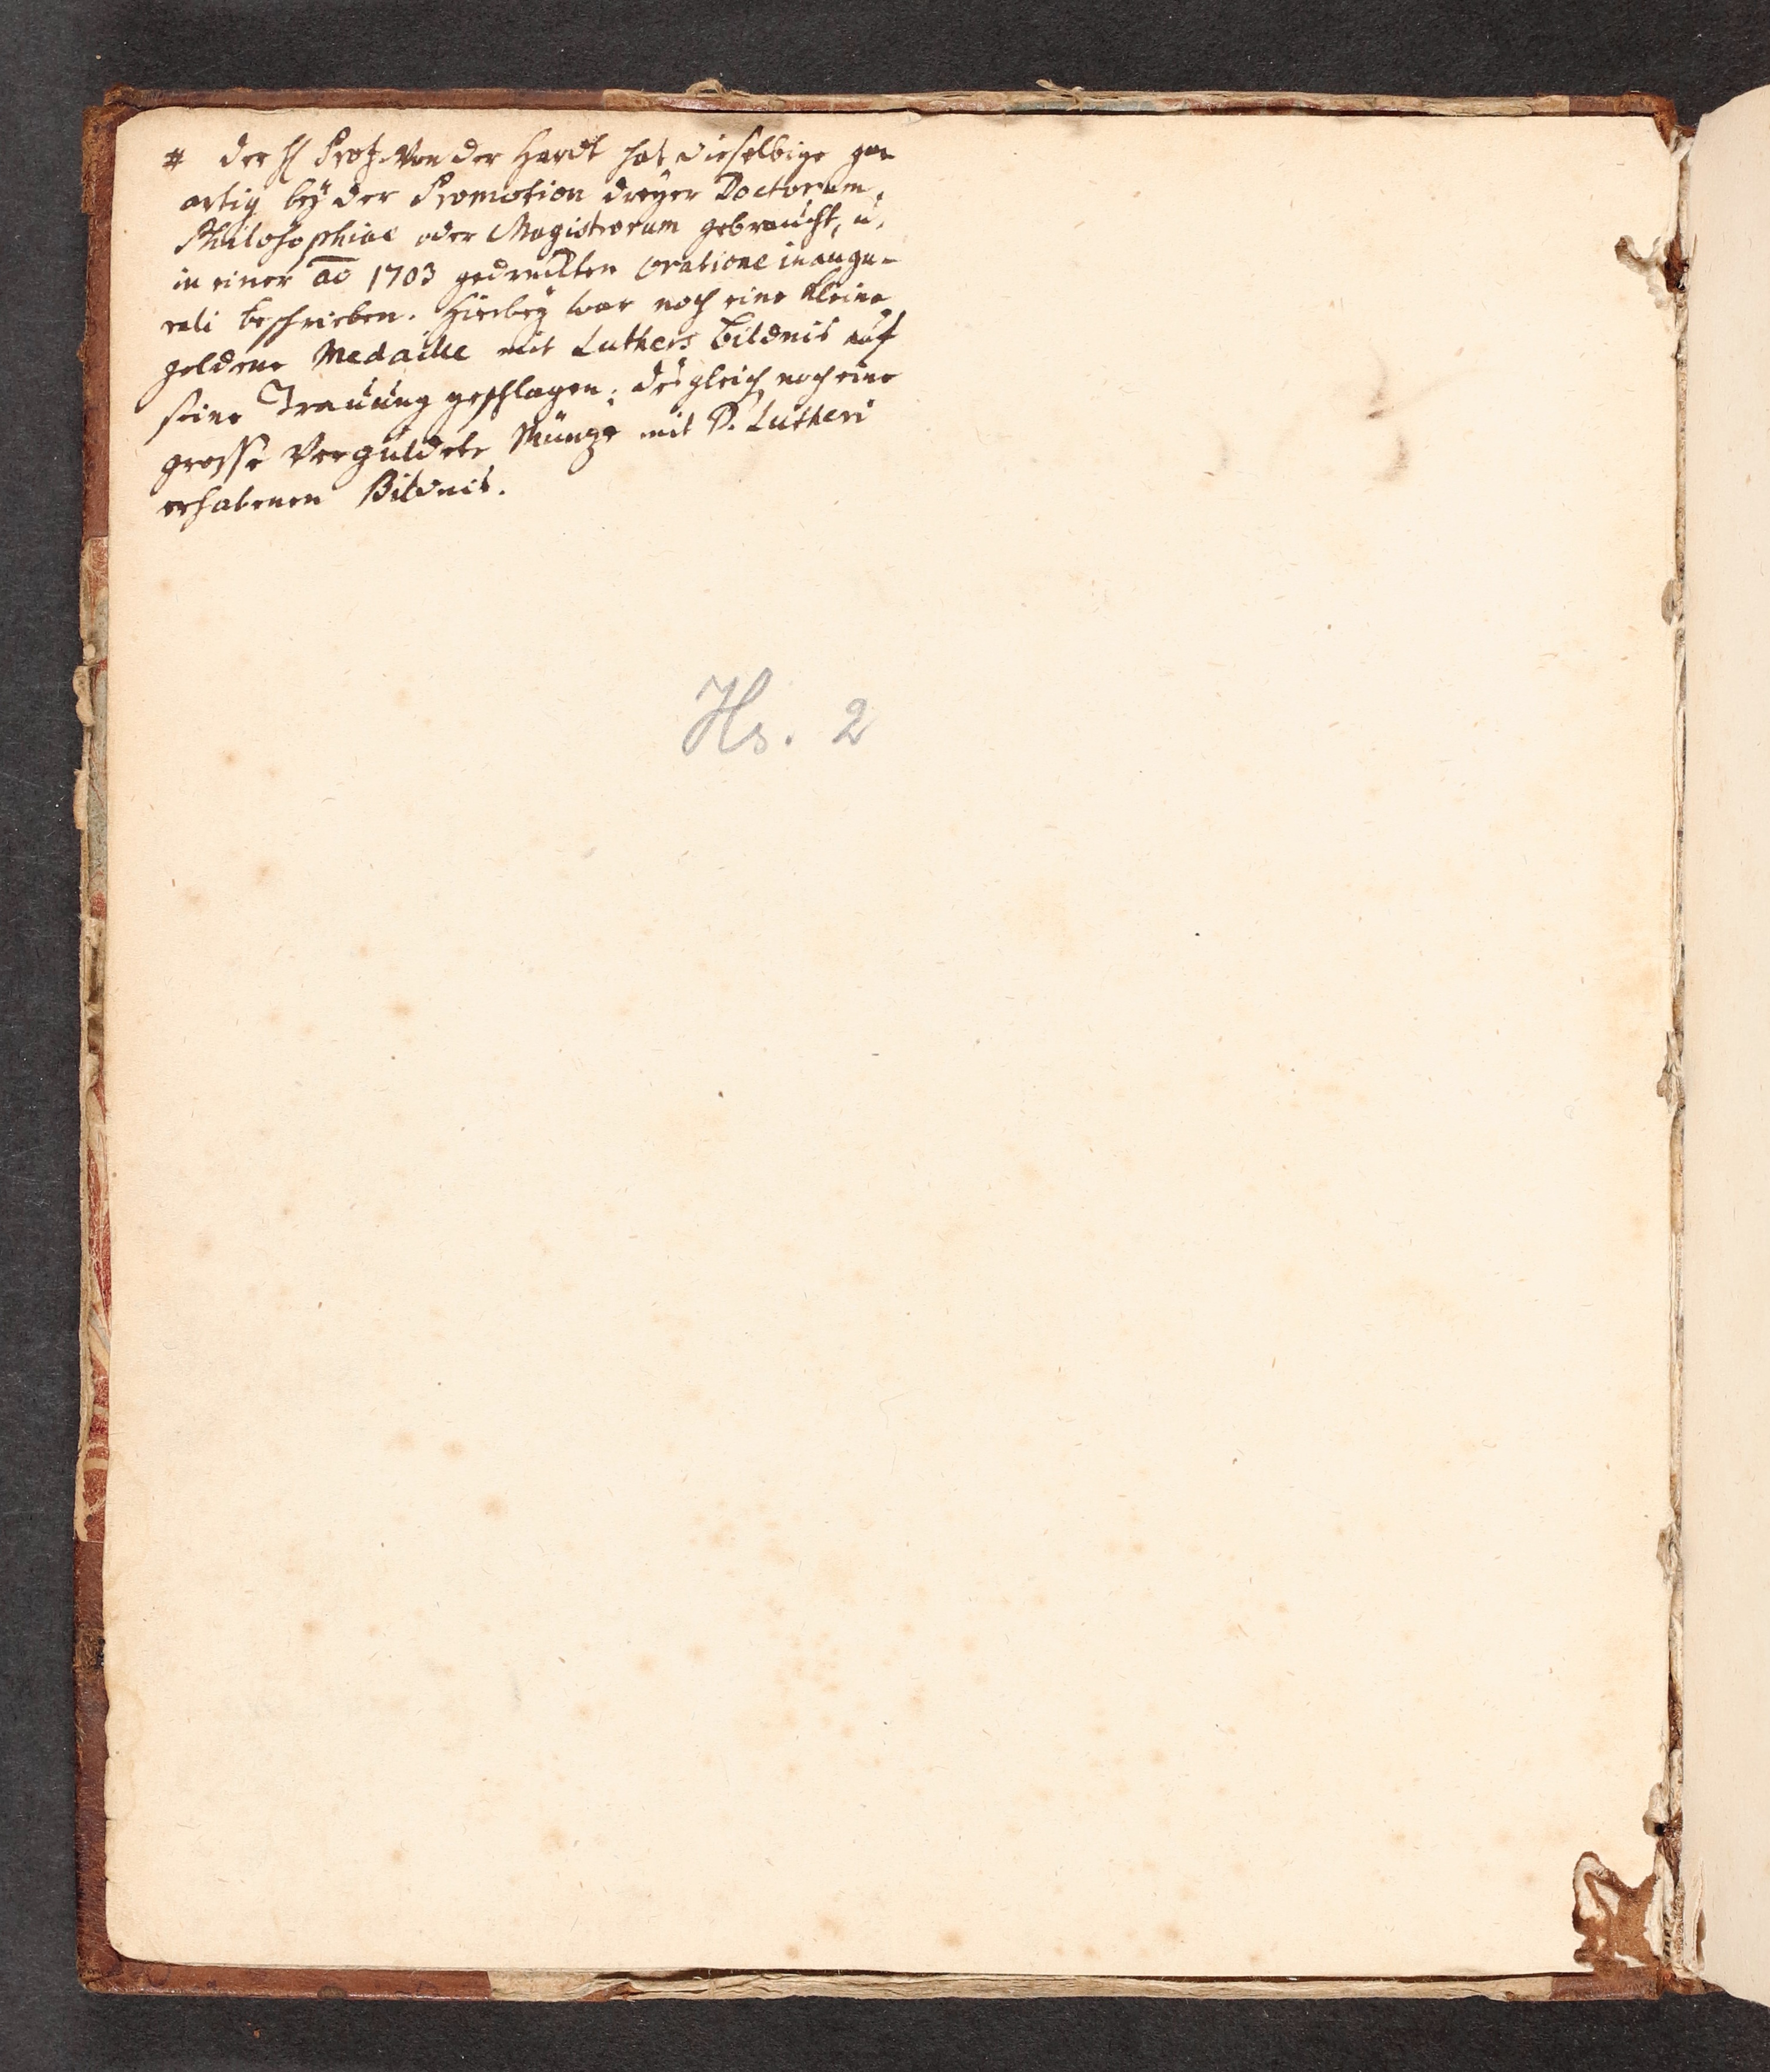 # der H. Prof. Von der Hardt hat dieselbige gar
artig beÿ der Promotion dreyer Doctorum
Philosophiae oder Magistrorum gebraucht, u.
in einer ao 1703 gedruckten Oratione inaugu-
rali beschrieben. Hierbeÿ war noch eine kleine
goldene Medaille mit Luthers Bildnis auf
seine Trauung geschlagen; desgleich noch eine
grosse Verguldete Müntze mit D. Lutheri
erhabenen Bildnis.
Hs. 2